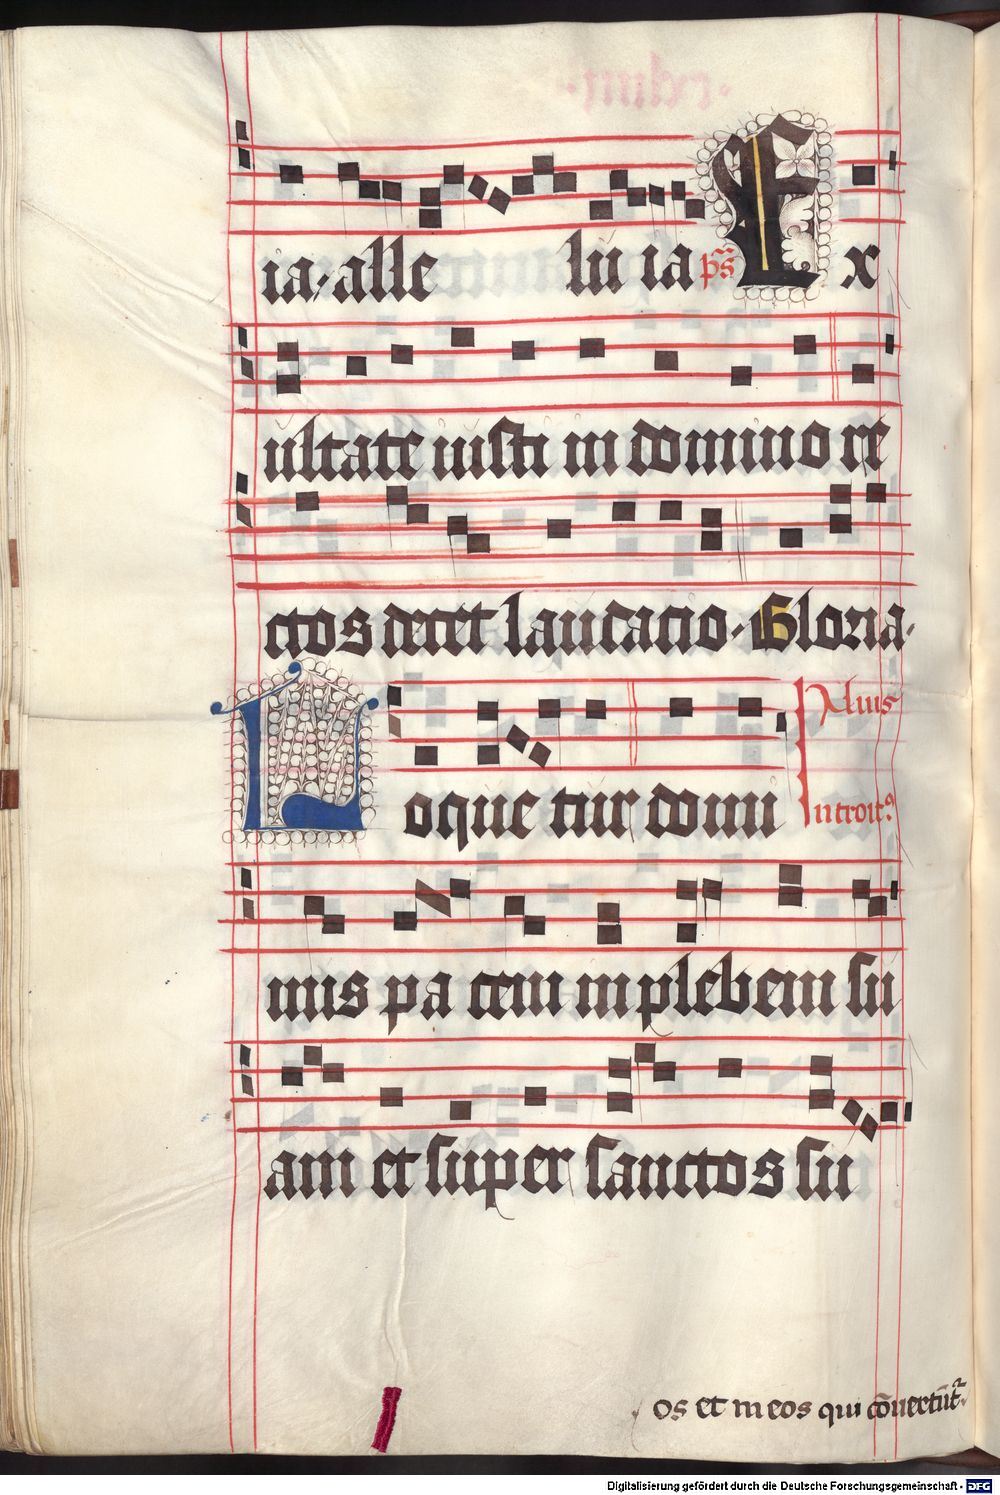 ia, alle lu ia ps̄ Ex
ultate iusti in domino re
ctos decet laudacio. Gloria.
Alius
Loque tur domi Introit⁹
nus pa cem in plebem su
am et super sanctos su
os et in eos qui cōuertūt᷑.
Digitalisierung gefördert durch die Deutsche Forschungsgemeinschaft - DFG